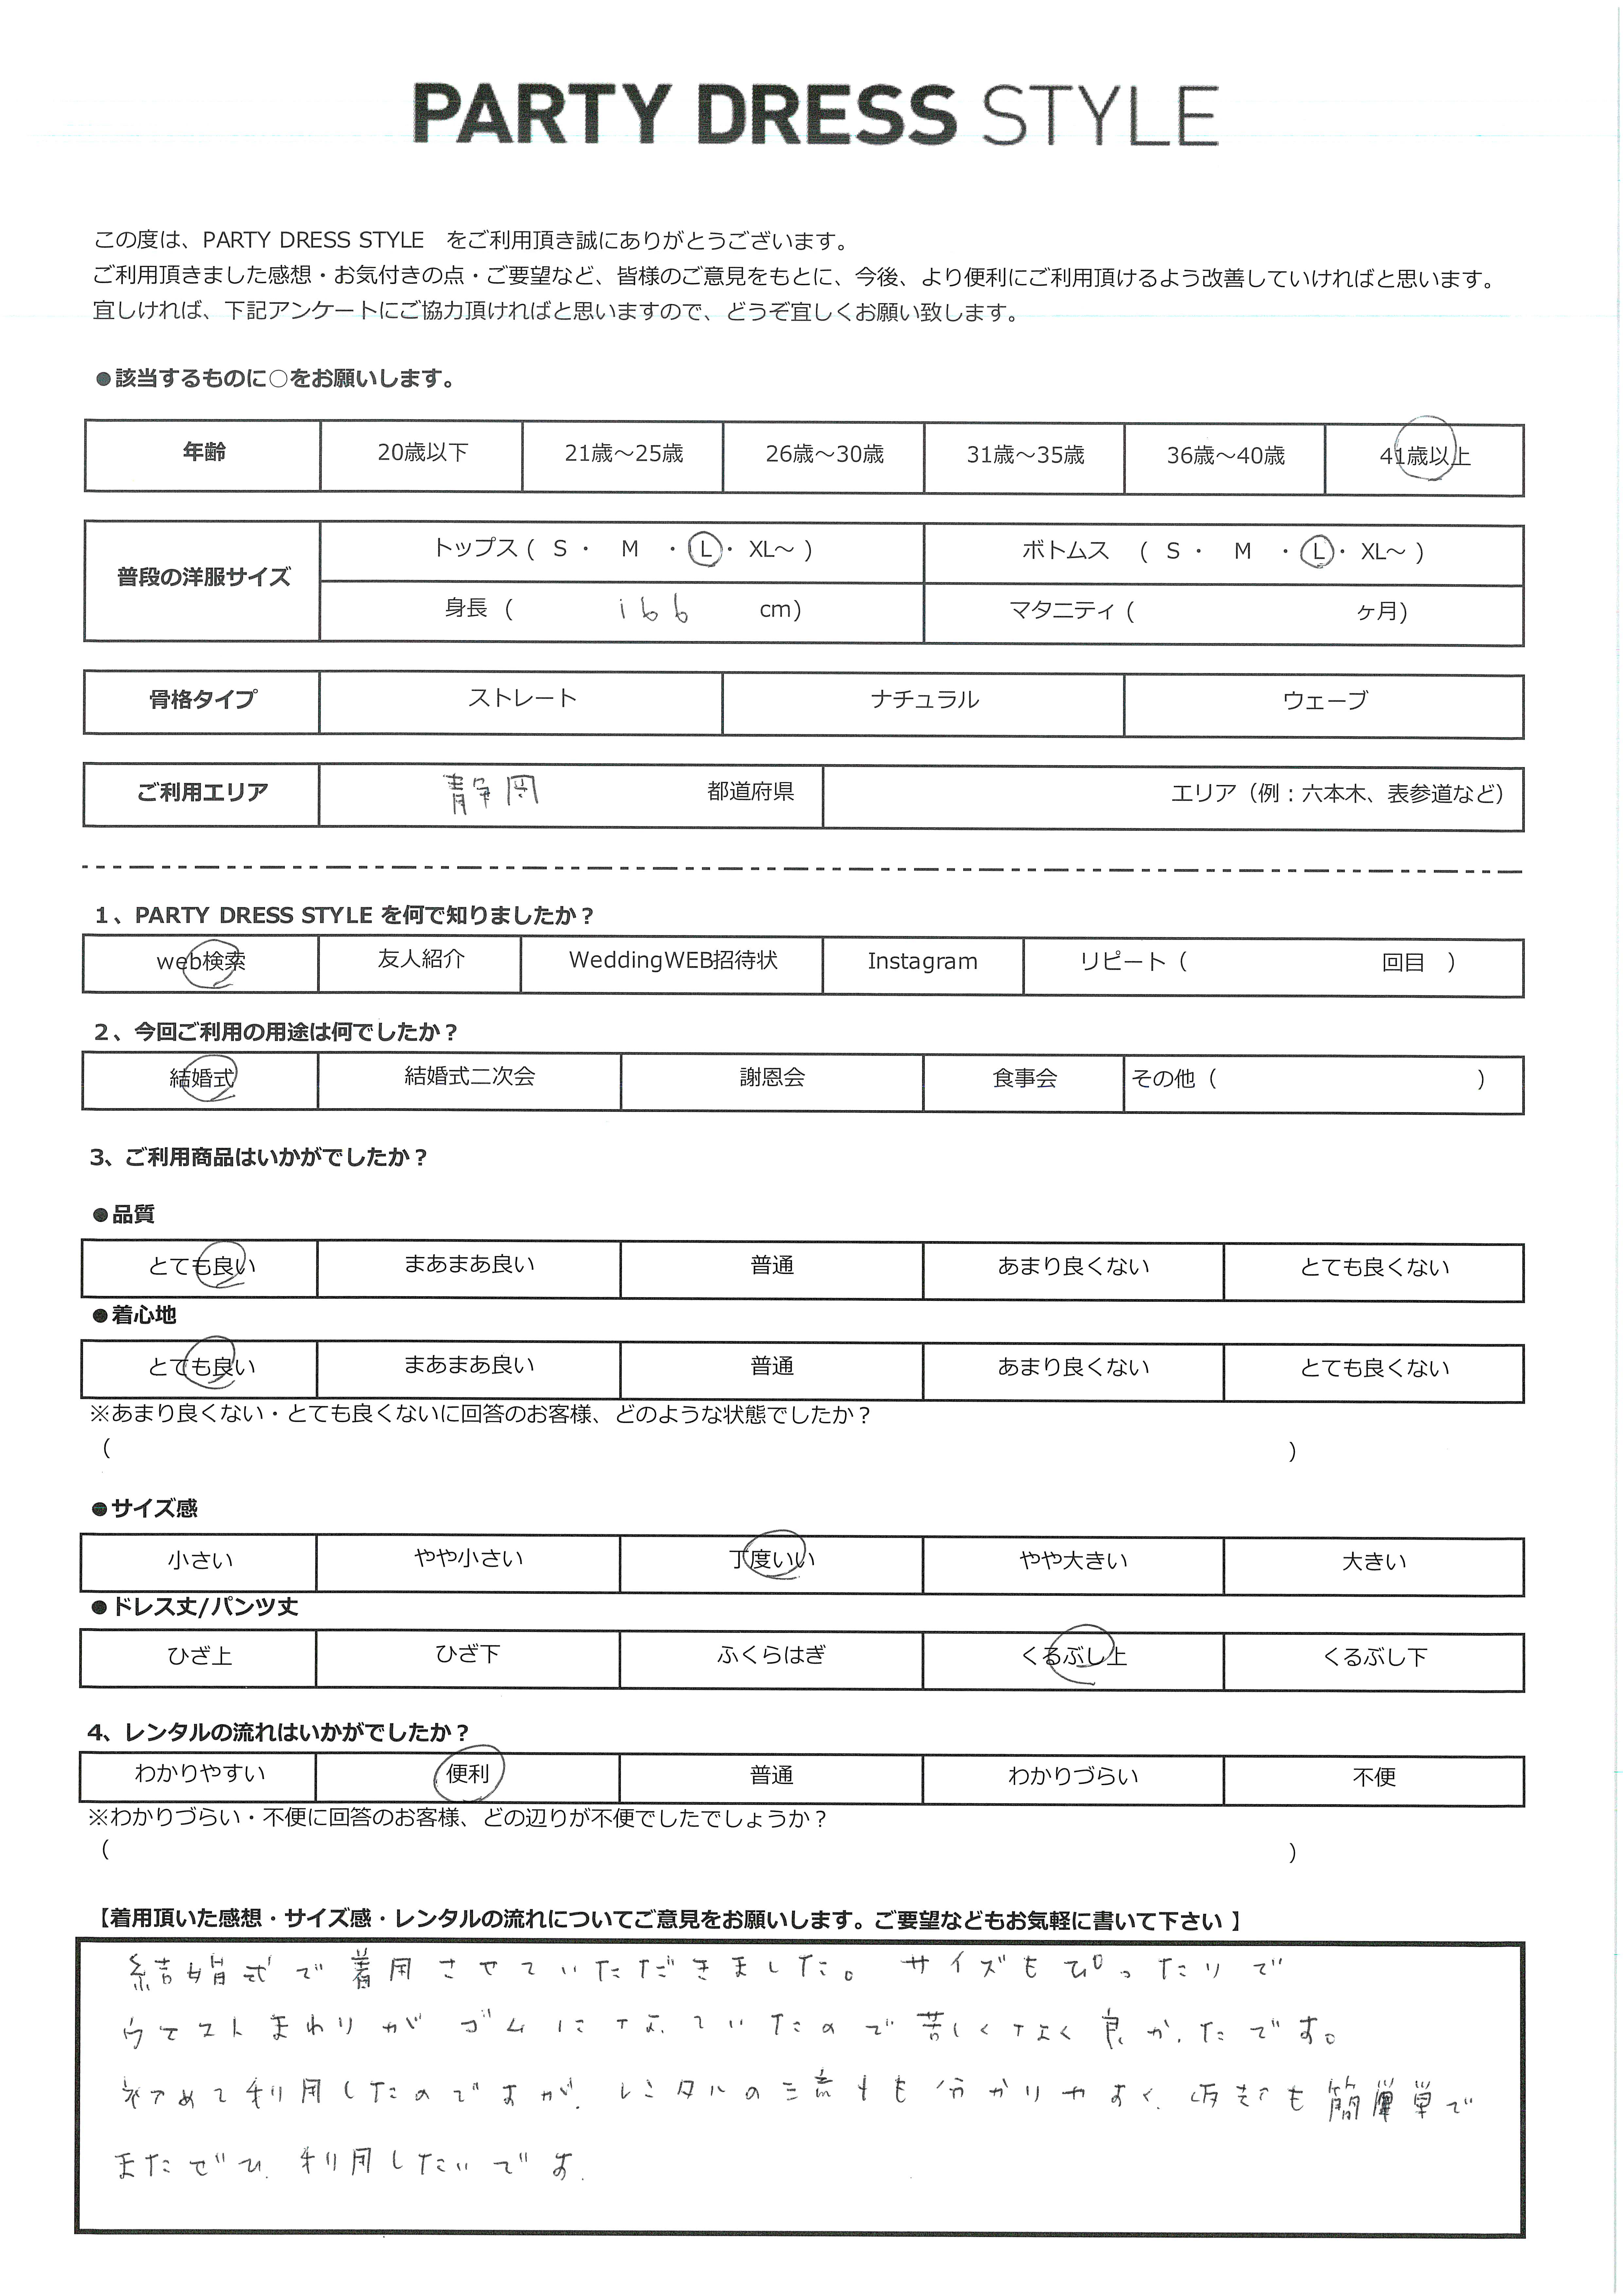 PARTY DRESS STYLE
この度は、PARTY DRESS STYLE をご利用頂き誠にありがとうございます。
ご利用頂きました感想・お気付きの点・ご要望など、皆様のご意見をもとに、今後、より便利にご利用頂けるよう改善していければと思います。
宜しければ、下記アンケートにご協力頂ければと思いますので、どうぞ宜しくお願い致します。
●該当するものに○をお願いします。
年齢 20歳以下 21歳～25歳 26歳～30歳 31歳～35歳 36歳～40歳 41歳以上
普段の洋服サイズ トップス ( S ・ M ・ L ・ XL～ ) ボトムス ( S ・ M ・ L ・ XL～ )
身長 ( 166 cm) マタニティ ( ヶ月)
骨格タイプ ストレート ナチュラル ウェーブ
ご利用エリア 静岡 都道府県 エリア（例：六本木、表参道など）
1、PARTY DRESS STYLE を何で知りましたか？
web検索 友人紹介 WeddingWEB招待状 Instagram リピート（ 回目 ）
2、今回ご利用の用途は何でしたか？
結婚式 結婚式二次会 謝恩会 食事会 その他（ ）
3、ご利用商品はいかがでしたか？
●品質
とても良い まあまあ良い 普通 あまり良くない とても良くない
●着心地
とても良い まあまあ良い 普通 あまり良くない とても良くない
※あまり良くない・とても良くないに回答のお客様、どのような状態でしたか？
（ ）
●サイズ感
小さい やや小さい 丁度いい やや大きい 大きい
●ドレス丈/パンツ丈
ひざ上 ひざ下 ふくらはぎ くるぶし上 くるぶし下
4、レンタルの流れはいかがでしたか？
わかりやすい 便利 普通 わかりづらい 不便
※わかりづらい・不便に回答のお客様、どの辺りが不便でしたでしょうか？
（ ）
【着用頂いた感想・サイズ感・レンタルの流れについてご意見をお願いします。ご要望などもお気軽に書いて下さい 】
結婚式で着用させていただきました。サイズもぴったりで
ウエストまわりがゴムになっていたので苦しくなく良かったです。
初めて利用したのですが、レンタルの流れも分かりやすく、返却も簡単で
またぜひ、利用したいです。